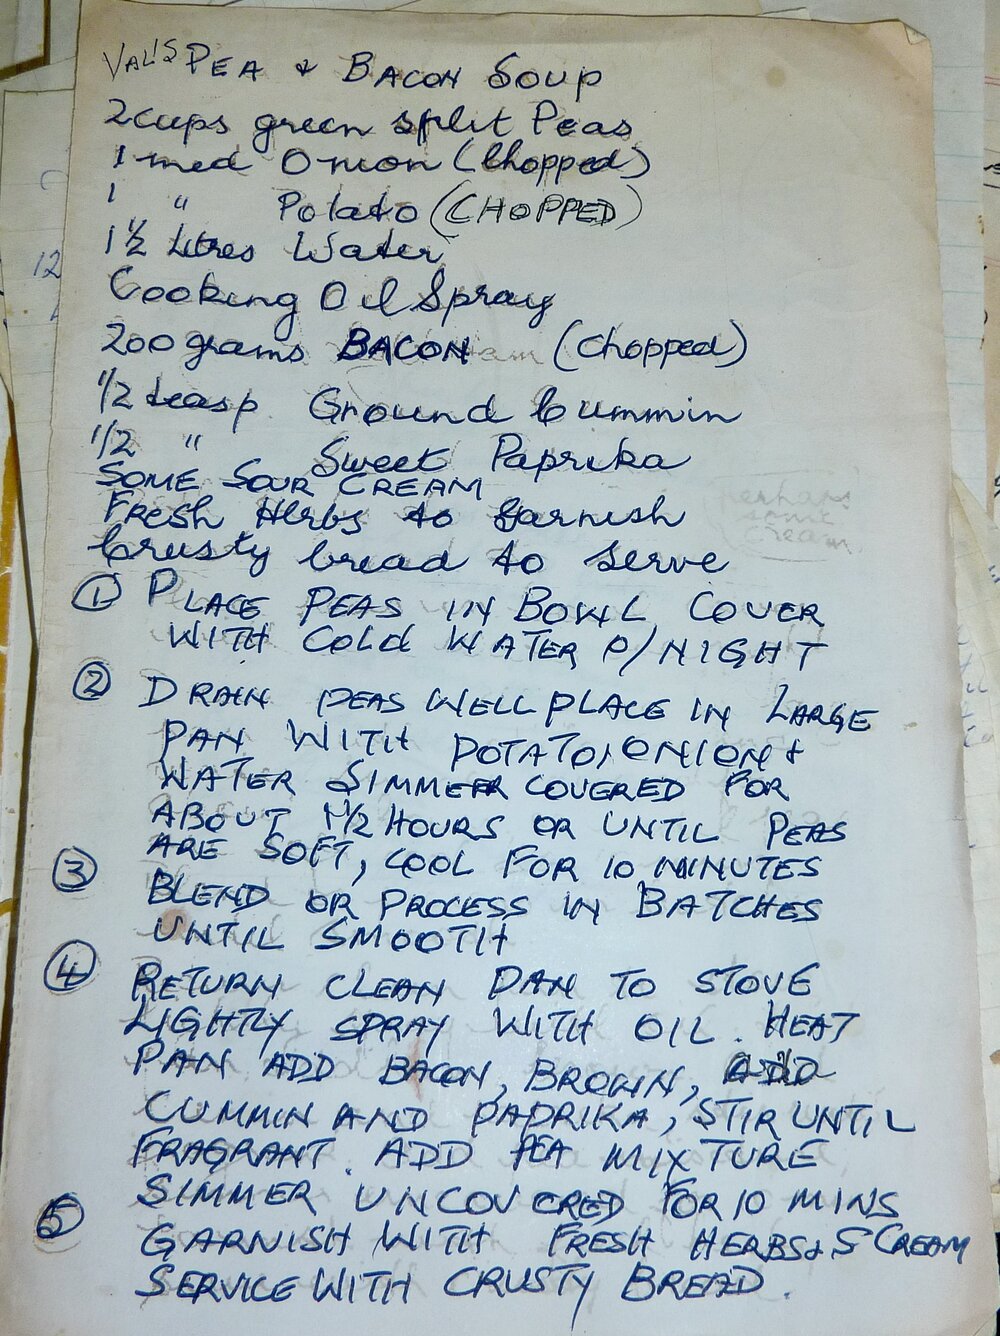 Val's Pea & Bacon Soup
2 cups green split Peas
1 med Onion (Chopped)
1 " Potato (CHOPPED)
1 ½ Litres Water
Cooking Oil Spray
200 grams BACON (Chopped)
1/2 teasp Ground Cummin
1/2 " Sweet Paprika
SOME SOUR CREAM
Fresh Herbs to Garnish
Crusty bread to Serve
① PLACE PEAS IN BOWL COVER
WITH COLD WATER O/NIGHT
② DRAIN PEAS WELL PLACE IN LARGE
PAN WITH POTATO, ONION &
WATER SIMMER COVERED FOR
ABOUT 1 1/2 HOURS OR UNTIL PEAS
ARE SOFT, COOL FOR 10 MINUTES
③ BLEND OR PROCESS IN BATCHES
UNTIL SMOOTH
④ RETURN CLEAN PAN TO STOVE
LIGHTLY SPRAY WITH OIL. HEAT
PAN ADD BACON, BROWN, ADD
CUMMIN AND PAPRIKA, STIR UNTIL
FRAGRANT. ADD PEA MIXTURE
SIMMER UNCOVERED FOR 10 MINS
⑤ GARNISH WITH FRESH HERBS & S CREAM
SERVICE WITH CRUSTY BREAD.
perhaps
some
cream
12